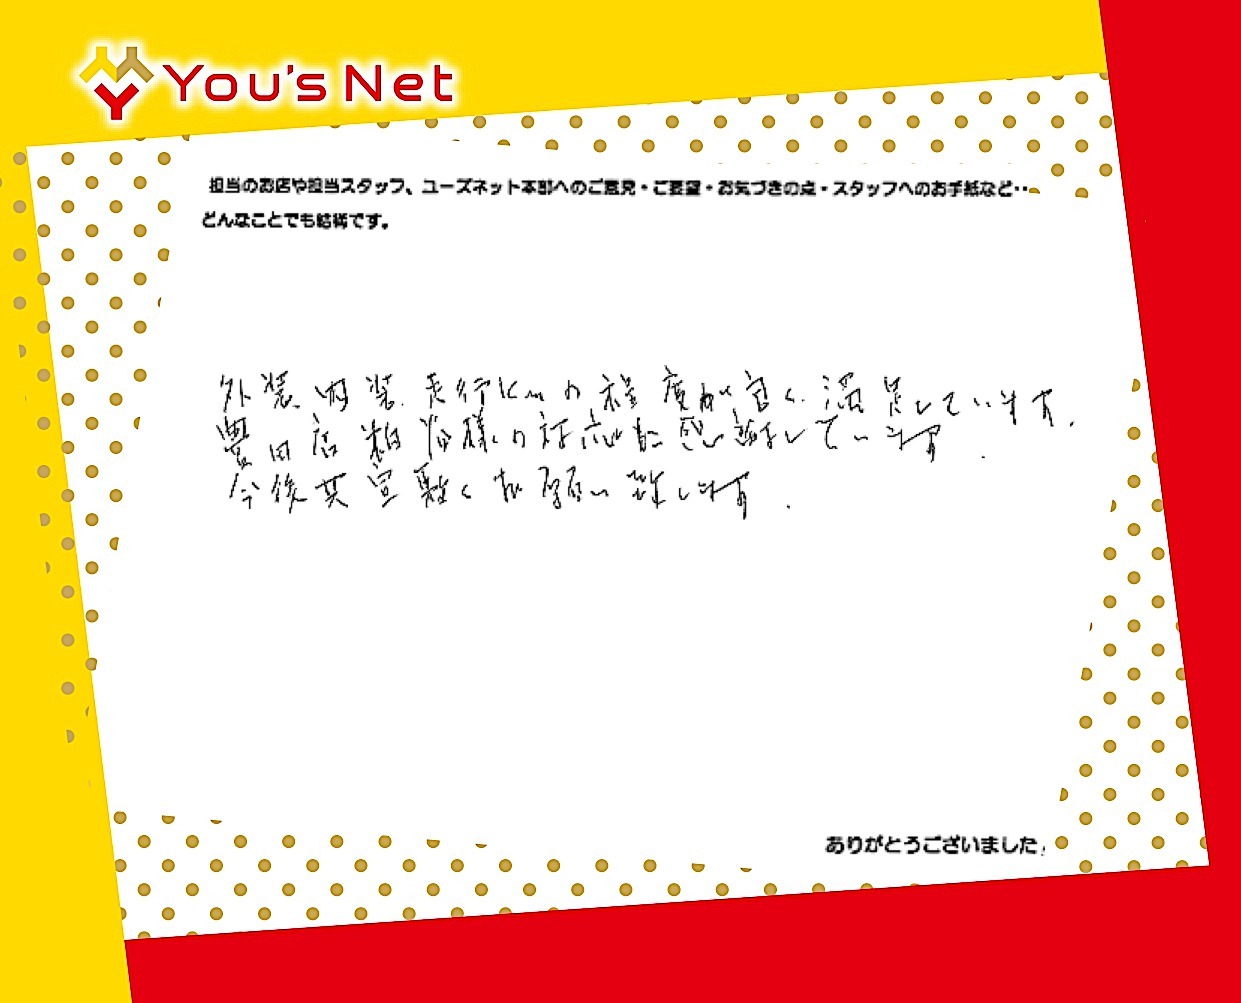 You's Net
担当のお店や担当スタッフ、ユーズネット本部へのご意見・ご要望・お気づきの点・スタッフへのお手紙など‥
どんなことでも結構です。
外装、内装、走行kmの程度が良く、満足しています。
豊田店 皆様の対応に感謝しています。
今後共宜敷くお願い致します。
ありがとうございました。